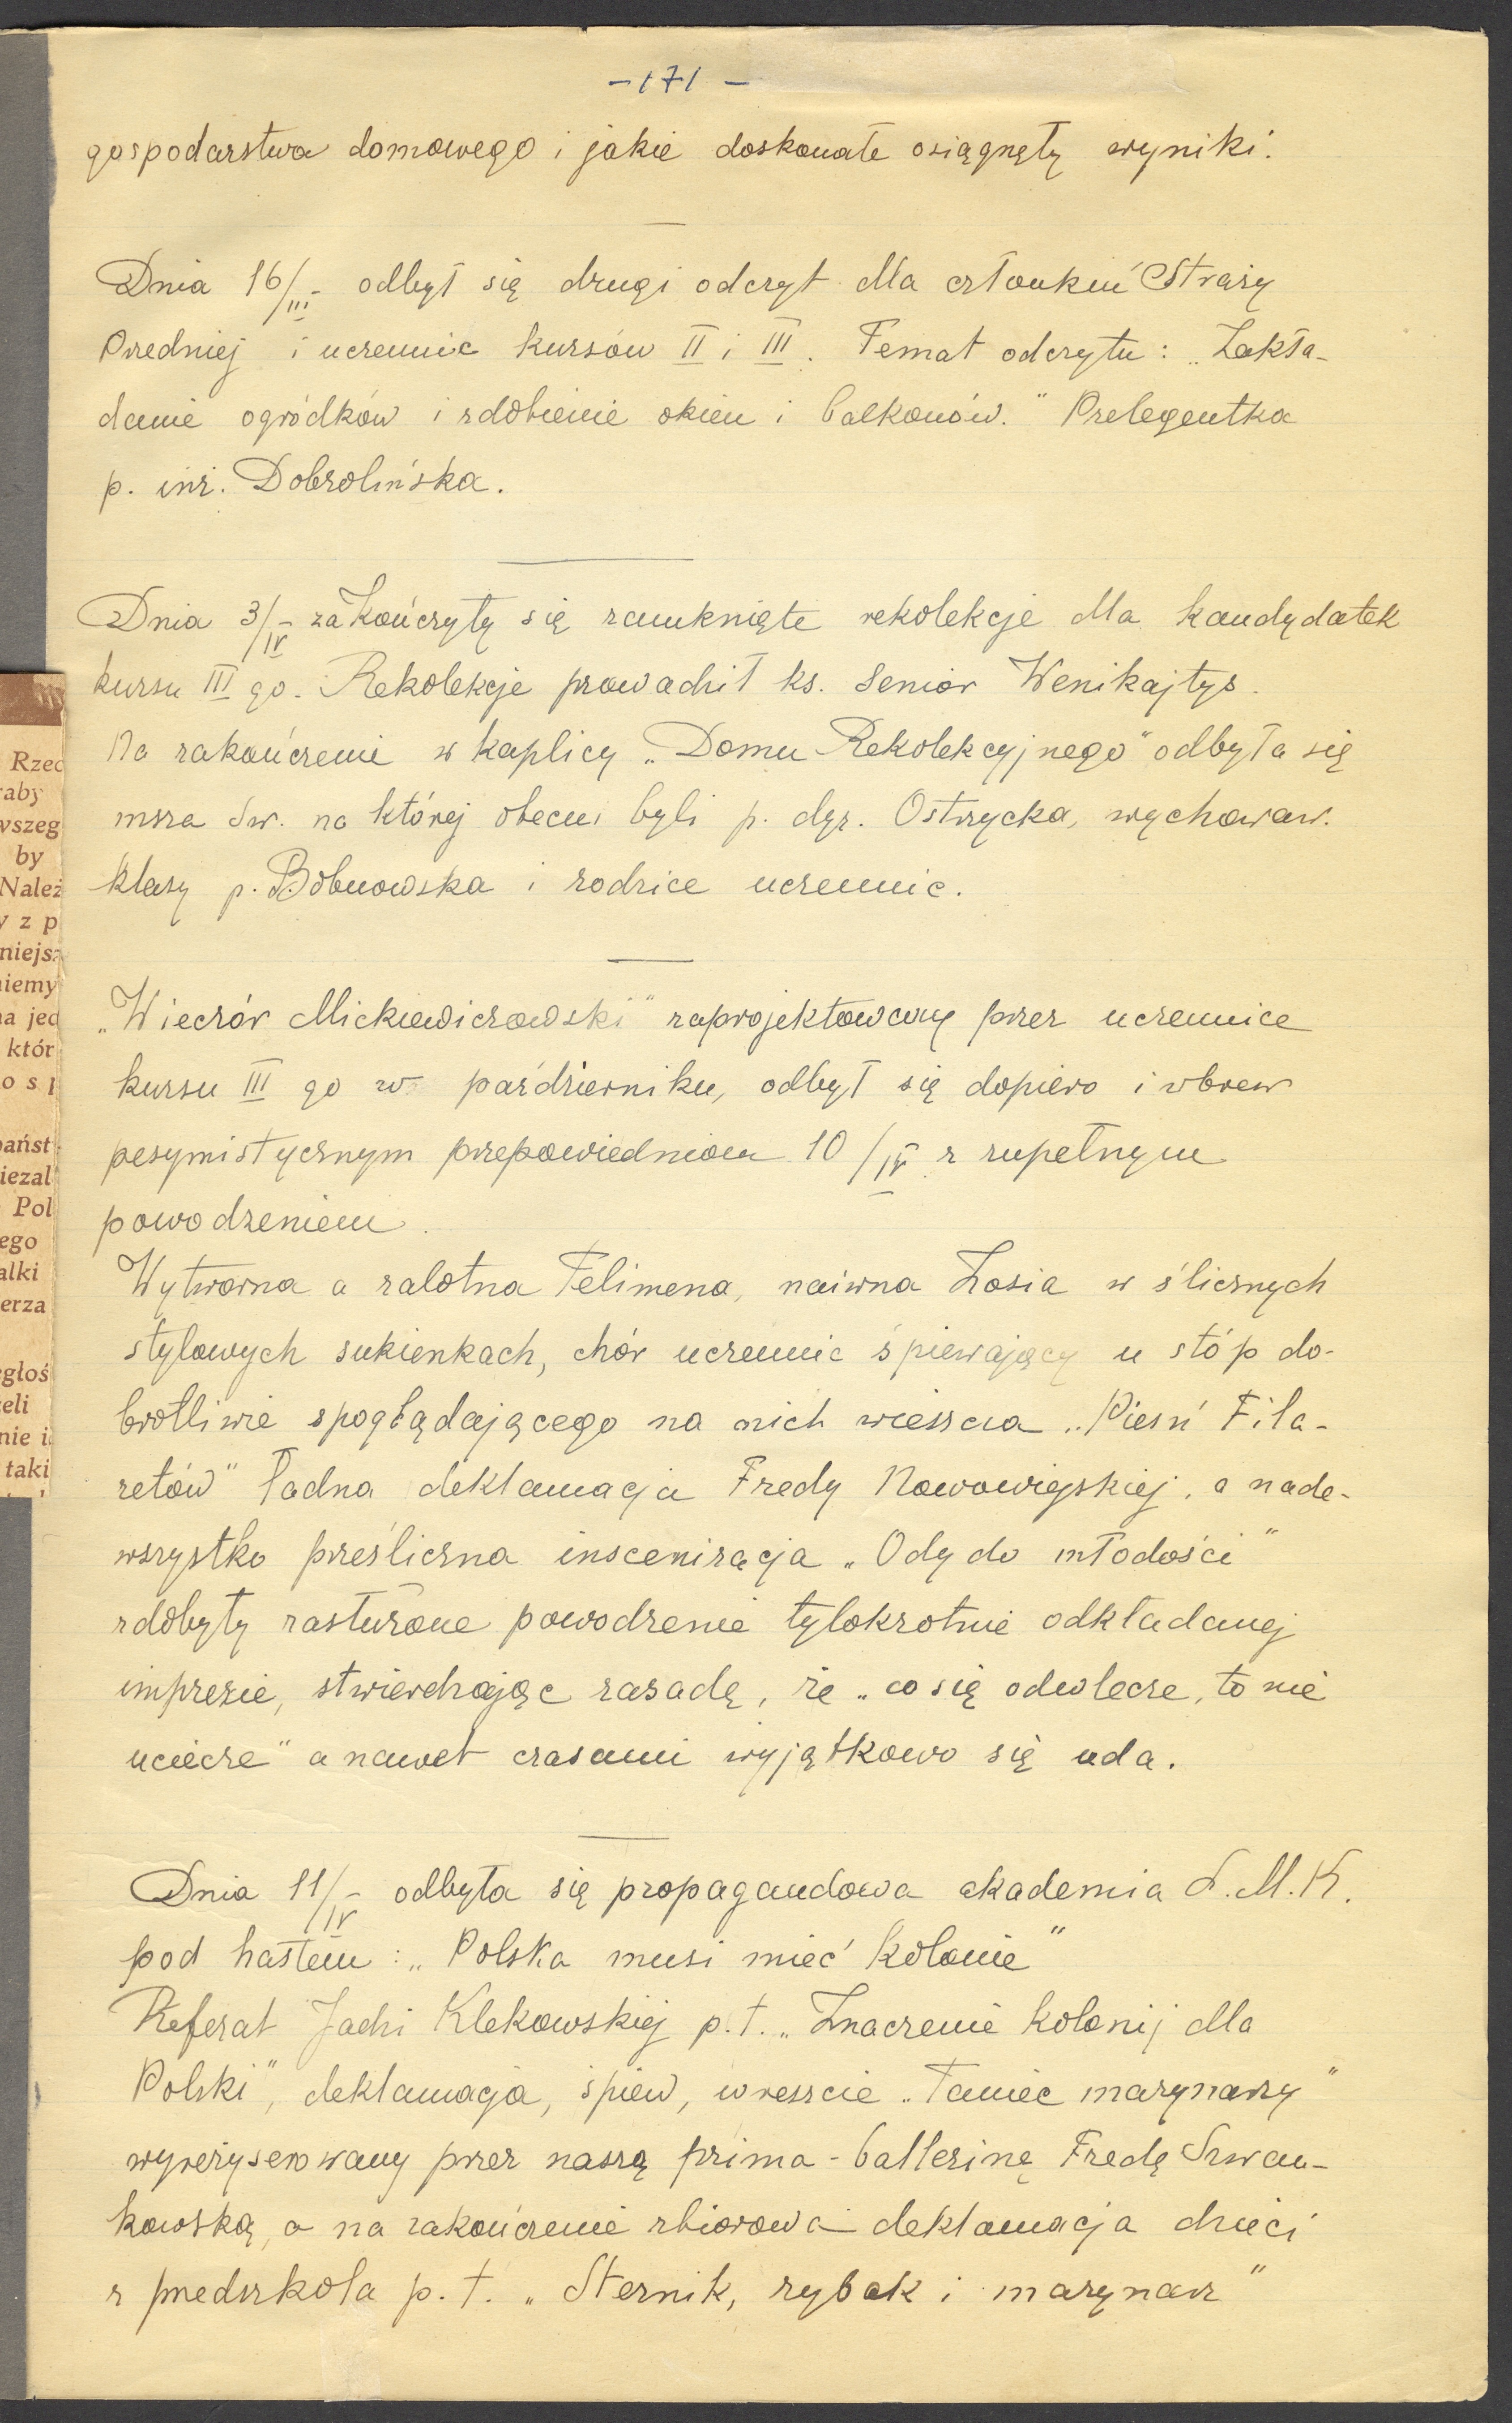 - 171 -
gospodarstwa domowego i jakie doskonałe osiągnęły wyniki.
Dnia 16/III - odbył się drugi odczyt dla członkiń Straży
Przedniej i uczennic kursów II i III. Temat odczytu: „Zakła-
danie ogródków i zdobienie okien i balkonów." Prelegentka
p. inż. Dobrolińska.
Dnia 3/IV - zakończyły się zamknięte rekolekcje dla kandydatek
kursu III go. Rekolekcje prowadził ks. senior Wenikajtys.
Na zakończenie w kaplicy „Domu Rekolekcyjnego" odbyła się
msza św. na której obecni byli p. dyr. Ostrzycka, wychowaw.
klasy p. Bobnowska i rodzice uczennic.
„Wieczór Mickiewiczowski" zaprojektowany przez uczennice
kursu III go w październiku, odbył się dopiero i wbrew
pesymistycznym przepowiedniom 10/IV z zupełnym
powodzeniem.
Wytworna a zalotna Telimena, naiwna Zosia w ślicznych
stylowych sukienkach, chór uczennic śpiewający u stóp do-
brotliwie spoglądającego na nich wieszcza „Pieśń Fila-
retów" ładna deklamacja Fredy Nowowiejskiej, a nade-
wszystko prześliczna inscenizacja „Ody do młodości"
zdobyły zasłużone powodzenie tylokrotnie odkładanej
imprezie, stwierdzając zasadę, że „co się odwlecze, to nie
uciecze" a nawet czasami wyjątkowo się uda.
Dnia 11/IV - odbyła się propagandowa akademia L.M.K.
pod hasłem: „Polska musi mieć kolonie"
Referat Jadzi Klekowskiej p.t. „Znaczenie kolonij dla
Polski", deklamacja, śpiew, wreszcie „Taniec marynarzy"
wyreżyserowany przez naszą prima-ballerinę Fredę Szwan-
kowską, a na zakończenie zbiorowa deklamacja dzieci
z przedszkola p.t. „Sternik, rybak i marynarz"
Rzec
raby
wszeg
by
Należ
y z p
niejsz
niemy
na jed
któr
o s p
państ
iezal
Pol
ego
alki
erza
głoś
eli
nie i
taki